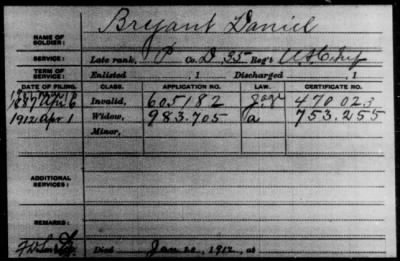 NAME OF SOLDIER: Bryant Daniel
SERVICE: Late rank, P Co. D 35 Reg't U.S.C. Inf
TERM OF SERVICE: Enlisted , 1 Discharged , 1
DATE OF FILING. CLASS. APPLICATION NO. LAW. CERTIFICATE NO.
1887 Apr 6 Invalid, 605182 470.023
1912 Apr 1 Widow, 983.705 a 753.255
Minor,
ADDITIONAL SERVICES:
REMARKS:
Died Jan 20, 1912, at